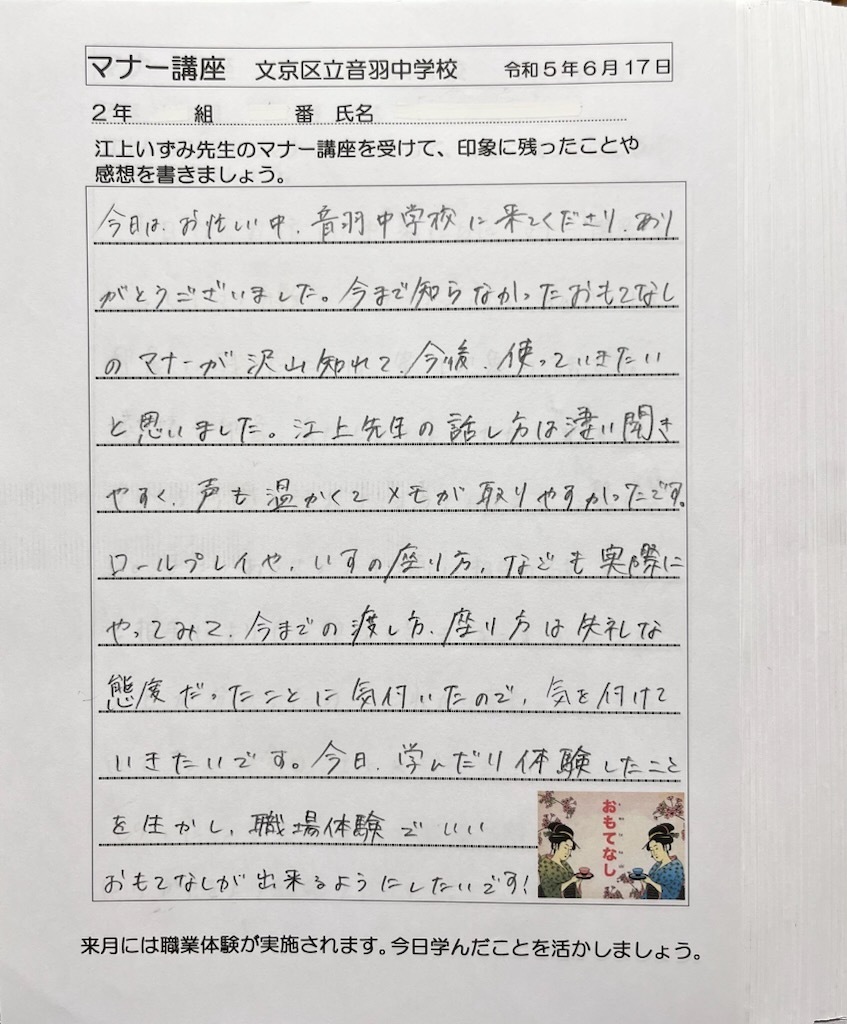 マナー講座 文京区立音羽中学校 令和5年6月17日
2年 組 番 氏名
江上いずみ先生のマナー講座を受けて、印象に残ったことや
感想を書きましょう。
今日は、お忙しい中、音羽中学校に来てくださり、あり
がとうございました。今まで知らなかったおもてなし
のマナーが沢山知れて、今後、使っていきたい
と思いました。江上先生の話し方は凄い聞き
やすく、声も温かくてメモが取りやすかったです。
ロールプレイや、いすの座り方、なども実際に
やってみて、今までの渡し方、座り方は失礼な
態度だったことに気付いたので、気を付けて
いきたいです。今日、学んだり体験したこと
を生かし、職場体験でいい
おもてなしが出来るようにしたいです!
おもてなし
来月には職業体験が実施されます。今日学んだことを活かしましょう。